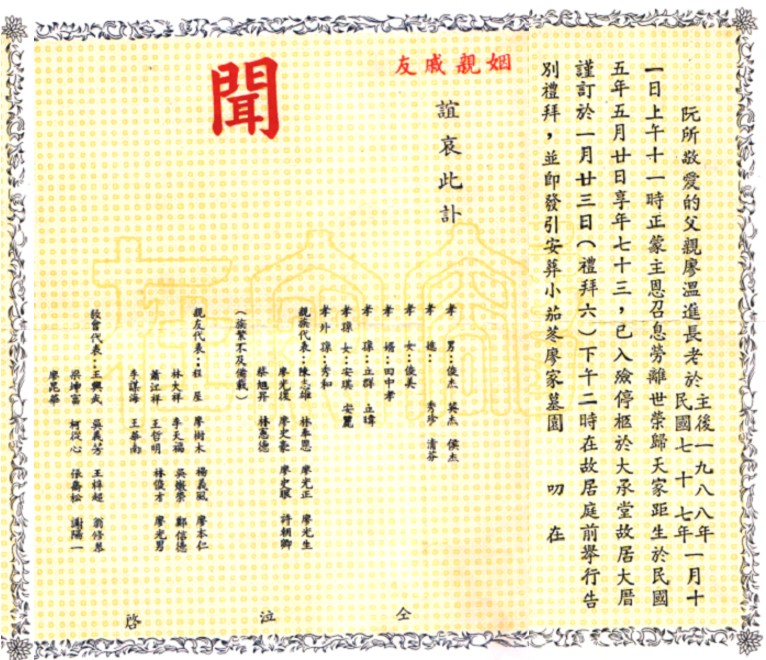 阮所敬愛的父親廖溫進長老於主後一九八八年民國七十七年一月十
一日上午十一時正蒙主恩召息勞離世榮歸天家距生於民國
五年五月廿日享年七十三,已入殮停柩於大承堂故居大厝
謹訂於一月廿三日(禮拜六)下午二時在故居庭前舉行告
別禮拜,並即發引安葬小茄苳廖家墓園 叨在
姻親戚友
誼哀此訃
聞
孝男:俊杰 英杰 俟杰
孝媳: 秀珍 清芬
孝女:俊美
孝婿:田中孝
孝孫:立群 立暐
孝孫女:安琪 安麗
孝外孫:秀和
親族代表:陳志雄 林奉恩 廖光正 廖光生
廖光復 廖史豪 廖史眼 許朝卿
蔡旭昇 林惠德
(族繁不及備載)
親友代表:程屋 廖樹木 楊義風 廖本仁
林大祥 李天福 吳嫩榮 鄭信德
蕭江祥 王哲明 林俊才 廖光男
李謀海 王華南
教會代表:王興武 吳義芳 王梓超 翁修恭
梁坤富 柯從心 張喬松 謝陽一
廖昆華
仝泣啓